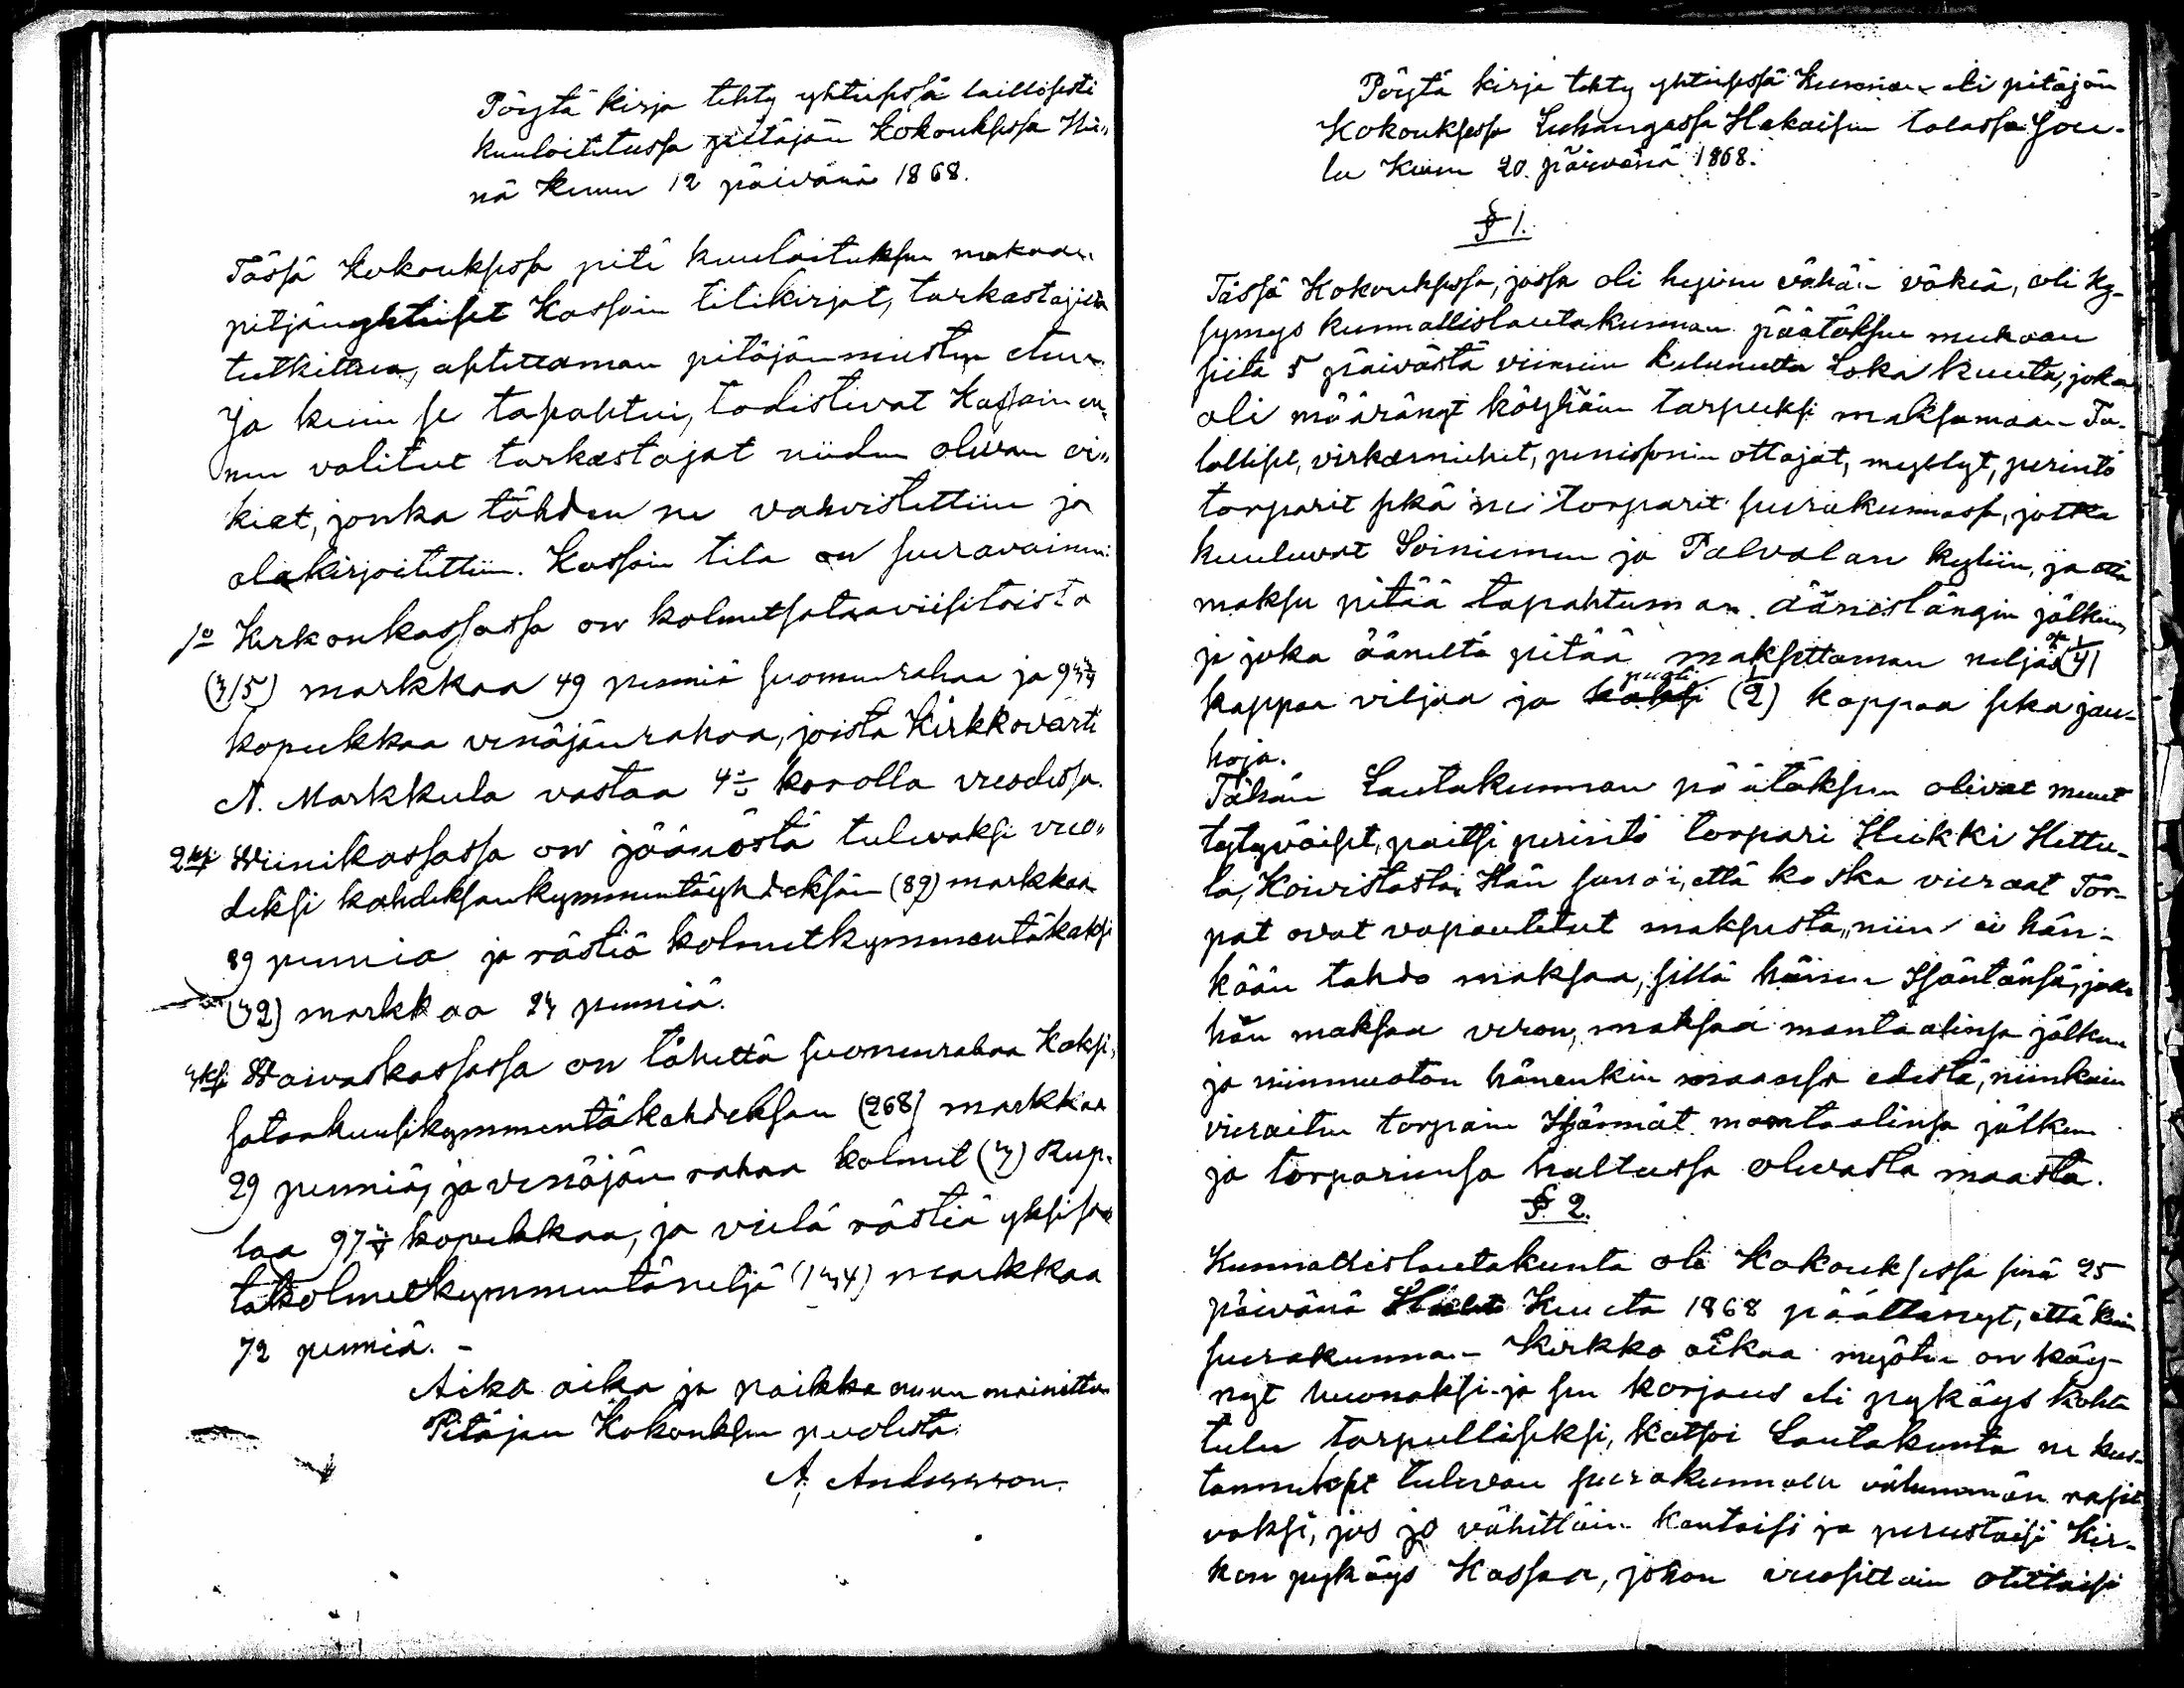 Pöytä kirja tehty yhteisessä laillisesti
kuuloitetussa pitäjän Kokouksessa Hei„
nä kuun 12 päivänä 1868.
Tässä Kokouksessa piti kuuloituksen mukaan
pitjänyhteiset Kassain tilikirjat, tarkastajilta
tutkittua, asetettaman pitäjänmiesten eteen
Ja kuin se tapahtui, todistivat Kassain en„
nen valitut tarkastajat niiden olevan oi„
kiat, jonka tähden ne vahvistettiin ja
alakirjoitettiin. Kassain tila on seuravainen:
1o Kirkonkassassa on kolmetsataaviisitoista
(315) markkaa 49 penniä suomenrahaa ja 93¾
kopeekkaa venäjänrahaa, joista Kirkkovärti
A. Markkula vastaa 4% korolla vuodessa.
2ksi Wiinikassassa on jäänöstä tulevaksi vuo„
deksi kahdeksankymmentäyhdeksän (89) markkaa
89 penniä ja rästiä kolmetkymmentäkaksi
(32) markkaa 23 penniä.
3ksi Waivaskassassa on tähettä suomenrahaa Kaksi„
sataakuusikymmentäkahdeksan (268) markkaa
29 penniä, ja venäjän rahaa kolmet (3) Rup„
laa 97¾ kopeekkaa, ja vielä rästiä yksisa„
takolmetkymmentäneljä (134) markkaa
72 penniä. -
Aika aika ja paikka ennen mainittu
Pitäjän Kokouksen puolesta:
A. Andersson.
Pöytä kirja tehty yhteisessä Kunnan eli pitäjän
Kokouksessa Luhangassa Hakaisen talossa Jou-
lu Kuun 20. päivänä 1868.
§ 1.
Tässä Kokouksessa, jossa oli hyvin vähän väkiä, oli ky-
symys kunnallislautakunnan päätöksen mukaan
siitä 5 päivästä viimein kulunutta Loka kuuta, joka
oli määränyt köyhäin tarpeeksi maksamaan Ta-
lolliset, virkamiehet, pensionin ottajat, myllyt, perintö
torparit sekä ne torparit seurakunnassa, jotka
kuuluvat Soiniemen ja Palvalan kyliin, ja että
maksu pitää tapahtuman äänislängin jälkeen,
ja joka ääneltä pitää maksettaman neljäs (¼)
puoli
kappaa viljaa ja kaksi (2) kappaa seka jau-
hoja.
Tähän Lautakunnan päätöksen olivat muut
tytyväiset, paitsi perintö torpari Heikki Hettu-
la, Koivistosta, Hän sanoi, että koska vieraat Tor-
pat ovat vapautetut maksusta, niin ei hän-
kään tahdo maksaa, sillä hänen Isäntänsä, jolle
hän maksaa veron, maksaa mantaalinsa jälkeen
ja niinmuoton hänenkin maansa edestä, niinkuin
vieraitten torpain Isännät mantaalinsa jälkeen
ja torpariensa hallussa olevasta maasta.
§ 2.
Kunnallislautakunta oli Kokouksessa sinä 25
päivänä Kuuta 1868 päättänyt, että kuin
seurakunnan Kirkko aikaa myöten on käy-
nyt huonoksi ja sen korjaus eli pykäys kohta
tulee tarpeelliseksi, katsoi Lautakunta ne kus-
tannukset tulevan seurakunnalle vähemmän rasit
vaksi, jos jo vähittäin kantaisi ja perustaisi Kir-
kon pykäys Kassan, johon vuosittain otettaisi